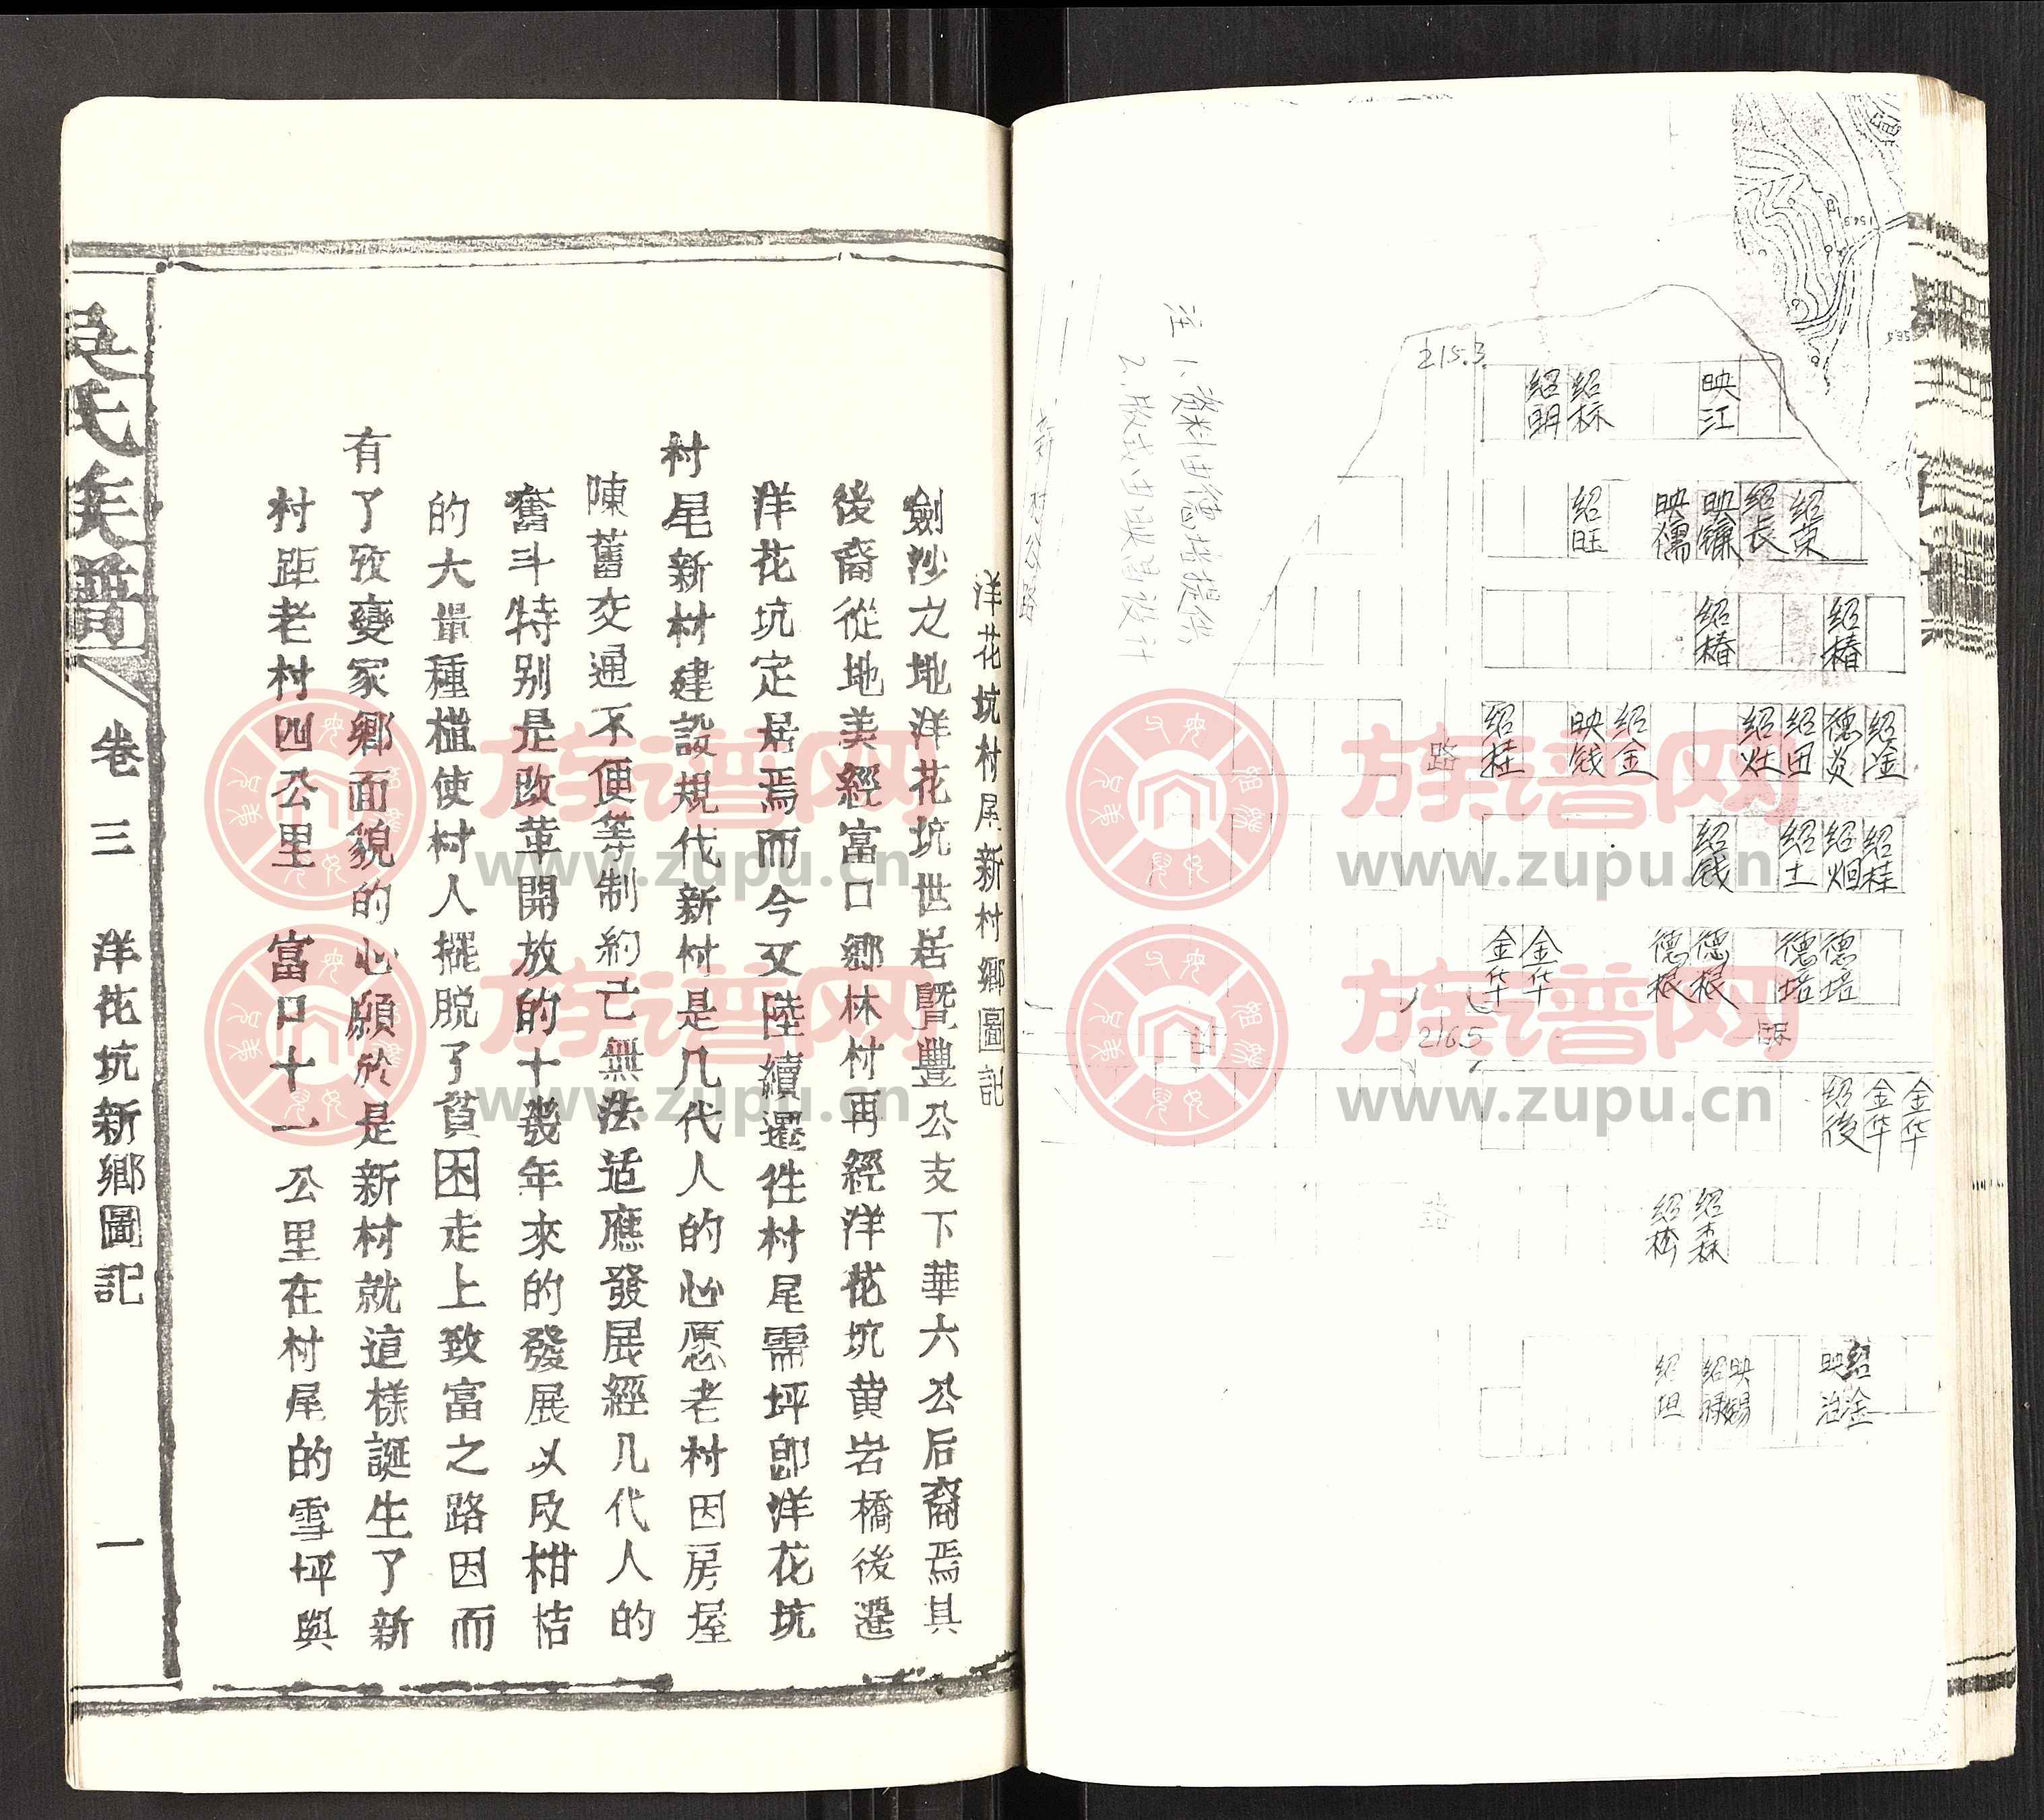 215.3
绍明 绍标 映江
绍旺 映儒 映镰 绍长 绍荣
绍椿 绍椿
绍桂 映钱 绍金 绍灶 绍田 德炎 绍淦
路
绍钱 绍土 绍烟 绍桂
金华 金华 德根 德根 德培 德培
2165
绍後 金华 金华
绍松 绍森
绍坦 绍禄 映赐 映治 绍淦
注 1、资料由德培提供
新村公路
洋花坑村尾新村鄉圖記
劍沙之地洋花坑世居暨豐公支下華六公后裔焉具
後裔從地美經富口鄉林村再經洋花坑黄岩橋後遷
洋花坑定居焉而今又陸續遷徃村尾需坪即洋花坑
村尾新村建設規代新村是几代人的心愿老村因房屋
陳舊交通不便等制約己無法适應發展經几代人的
奮斗特别是改革開放的十幾年來的發展以及柑桔
的大量種植使村人擺脱了貧困走上致富之路因而
有了改變家鄉面貌的心願於是新村就這樣誕生了新
村距老村四公里 富口十一公里在村尾的雪坪與
吴氏族譜
卷三 洋花坑新鄉圖記 一
族谱网
www.zupu.cn
族谱网
www.zupu.cn
族谱网
www.zupu.cn
族谱网
www.zupu.cn